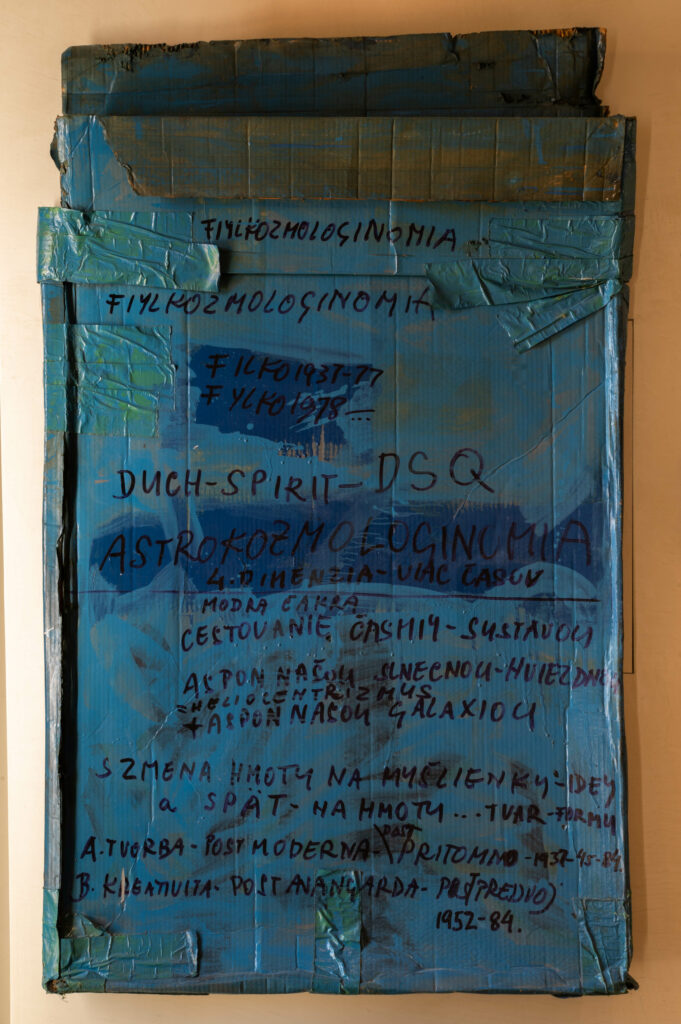 FIYLKOZMOLOGINOMIA
FIYLKOZMOLOGINOMIA
FILKO1937-77
FYLKO1978...
DUCH-SPIRIT-DSQ
ASTROKOZMOLOGINOMIA
4. DIMENZIA-VIAC ČASOV
MODRA ČAKRA
CESTOVANIE ČASMIY-SUSTAVOU
ASPON NAŠOU SLNEČNOU-HVIEZDNOU
=HELIOCENTRIZMUS
+ASPON NAŠOU GALAXIOU
SZMENA HMOTY NA MYŠLIENKY-IDEY
a SPÄT-NA HMOTY...TVAR-FORMU
A. TVORBA-POSTMODERNA-\POST PRITOMNO-1937-45-84.
B. KREATIVITA-POSTAVANGARDA-
1952-84.